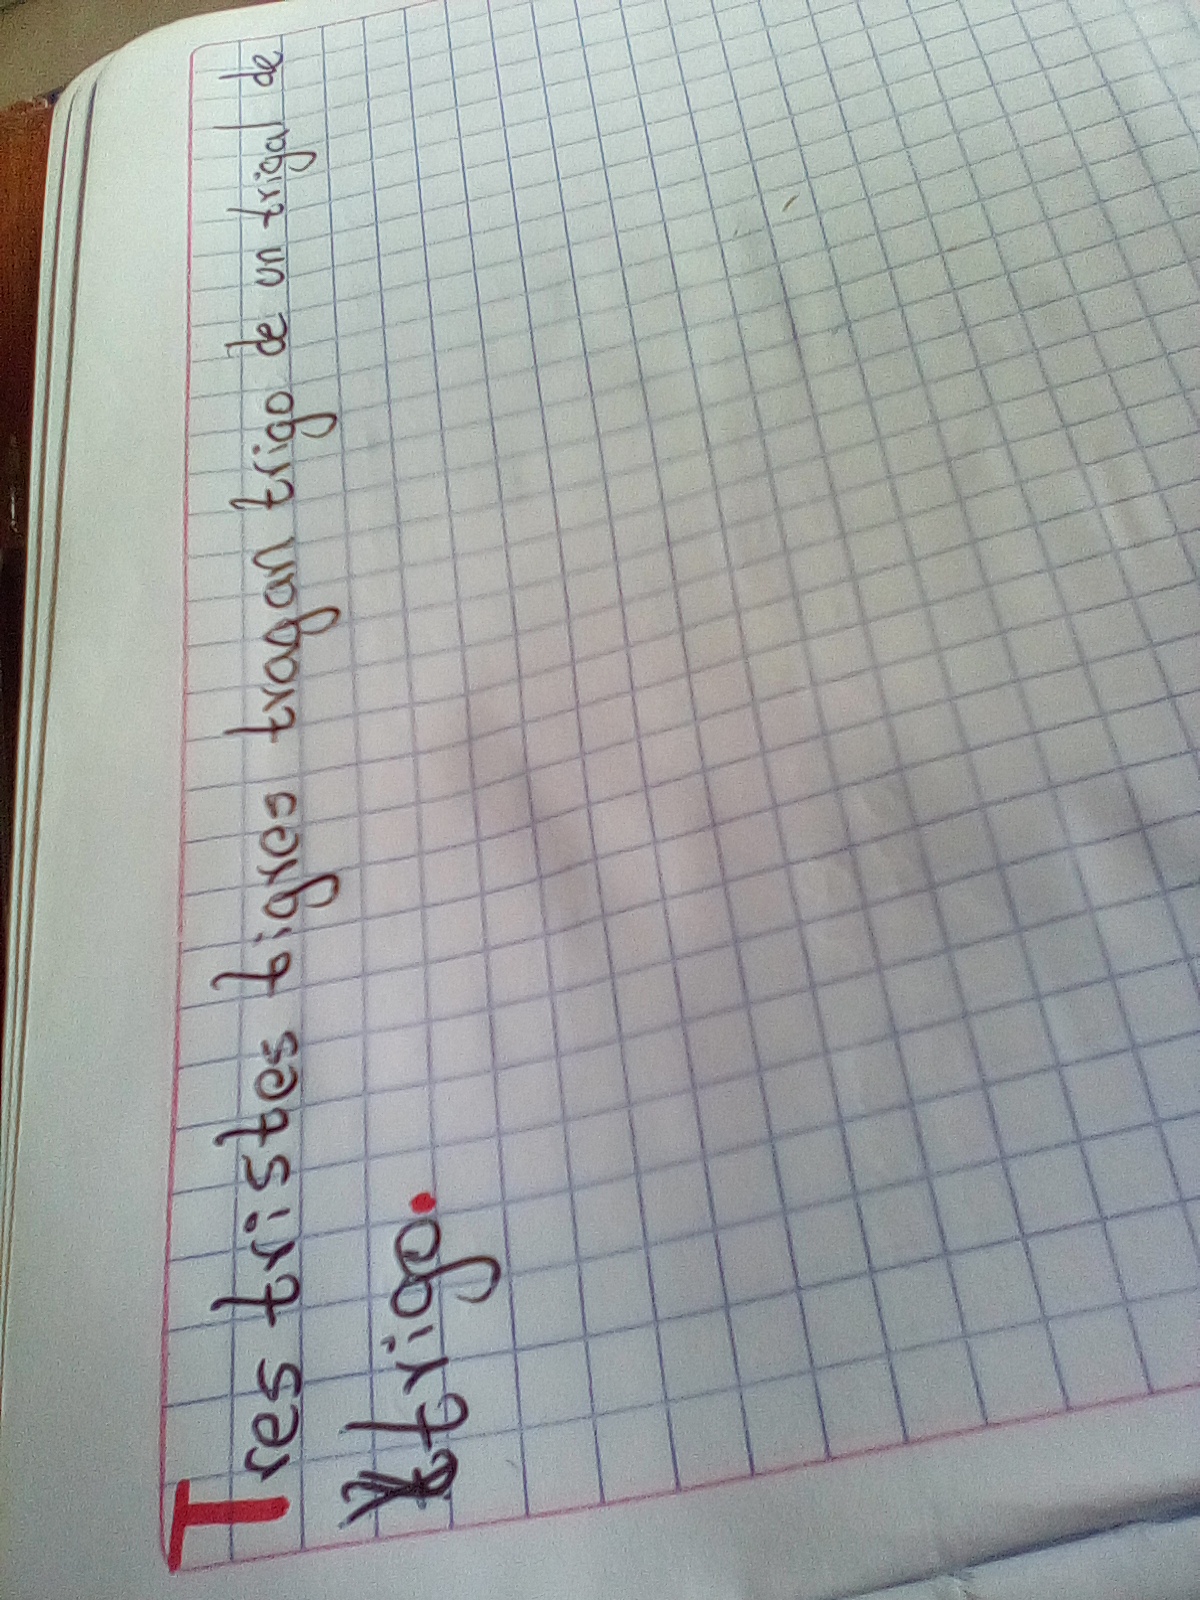 Tres tristes tigres tragan trigo de un trigal de
trigo.